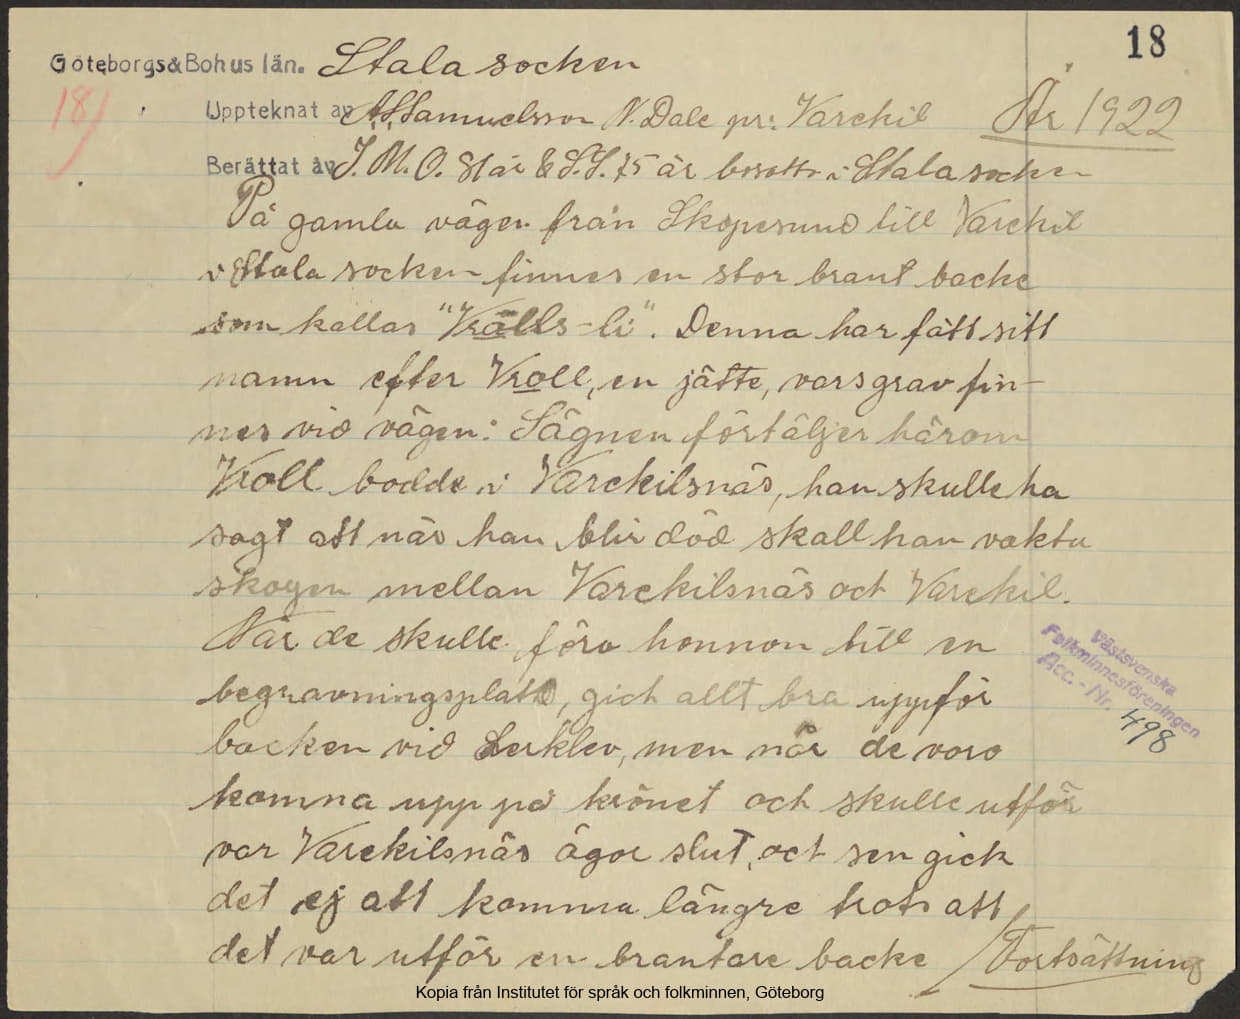 18
Göteborgs & Bohus län. Stala socken
18)
Uppteknat av A. S. Samuelsson N. Dale pr: Varekil År 1922
Berättat av J. M. O. 81 år & S. S. 75 år bosatta i Stala socken
På gamla vägen från Skåpesund till Varekil
i Stala socken finnes en stor brant backe
som kallas "Krålls-li". Denna har fått sitt
namn efter Kroll, en jätte, vars grav fin-
nes vid vägen: Sägnen förtäljer härom
Kroll bodde i Varekilsnäs, han skulle ha
sagt att när han blir död skall han vakta
skogen mellan Varekilsnäs och Varekil.
När de skulle föra honnon till en
begravningsplats, gick allt bra uppför
backen vid Lerklev, men när de voro
komna upp på krönet och skulle utför
var Varekilsnäs ägor slut, och sen gick
det ej att komma längre trots att
det var utför en brantare backe /Fortsättning
Västsvenska
Folkminnesföreningen
Acc.-Nr. 498
Kopia från Institutet för språk och folkminnen, Göteborg